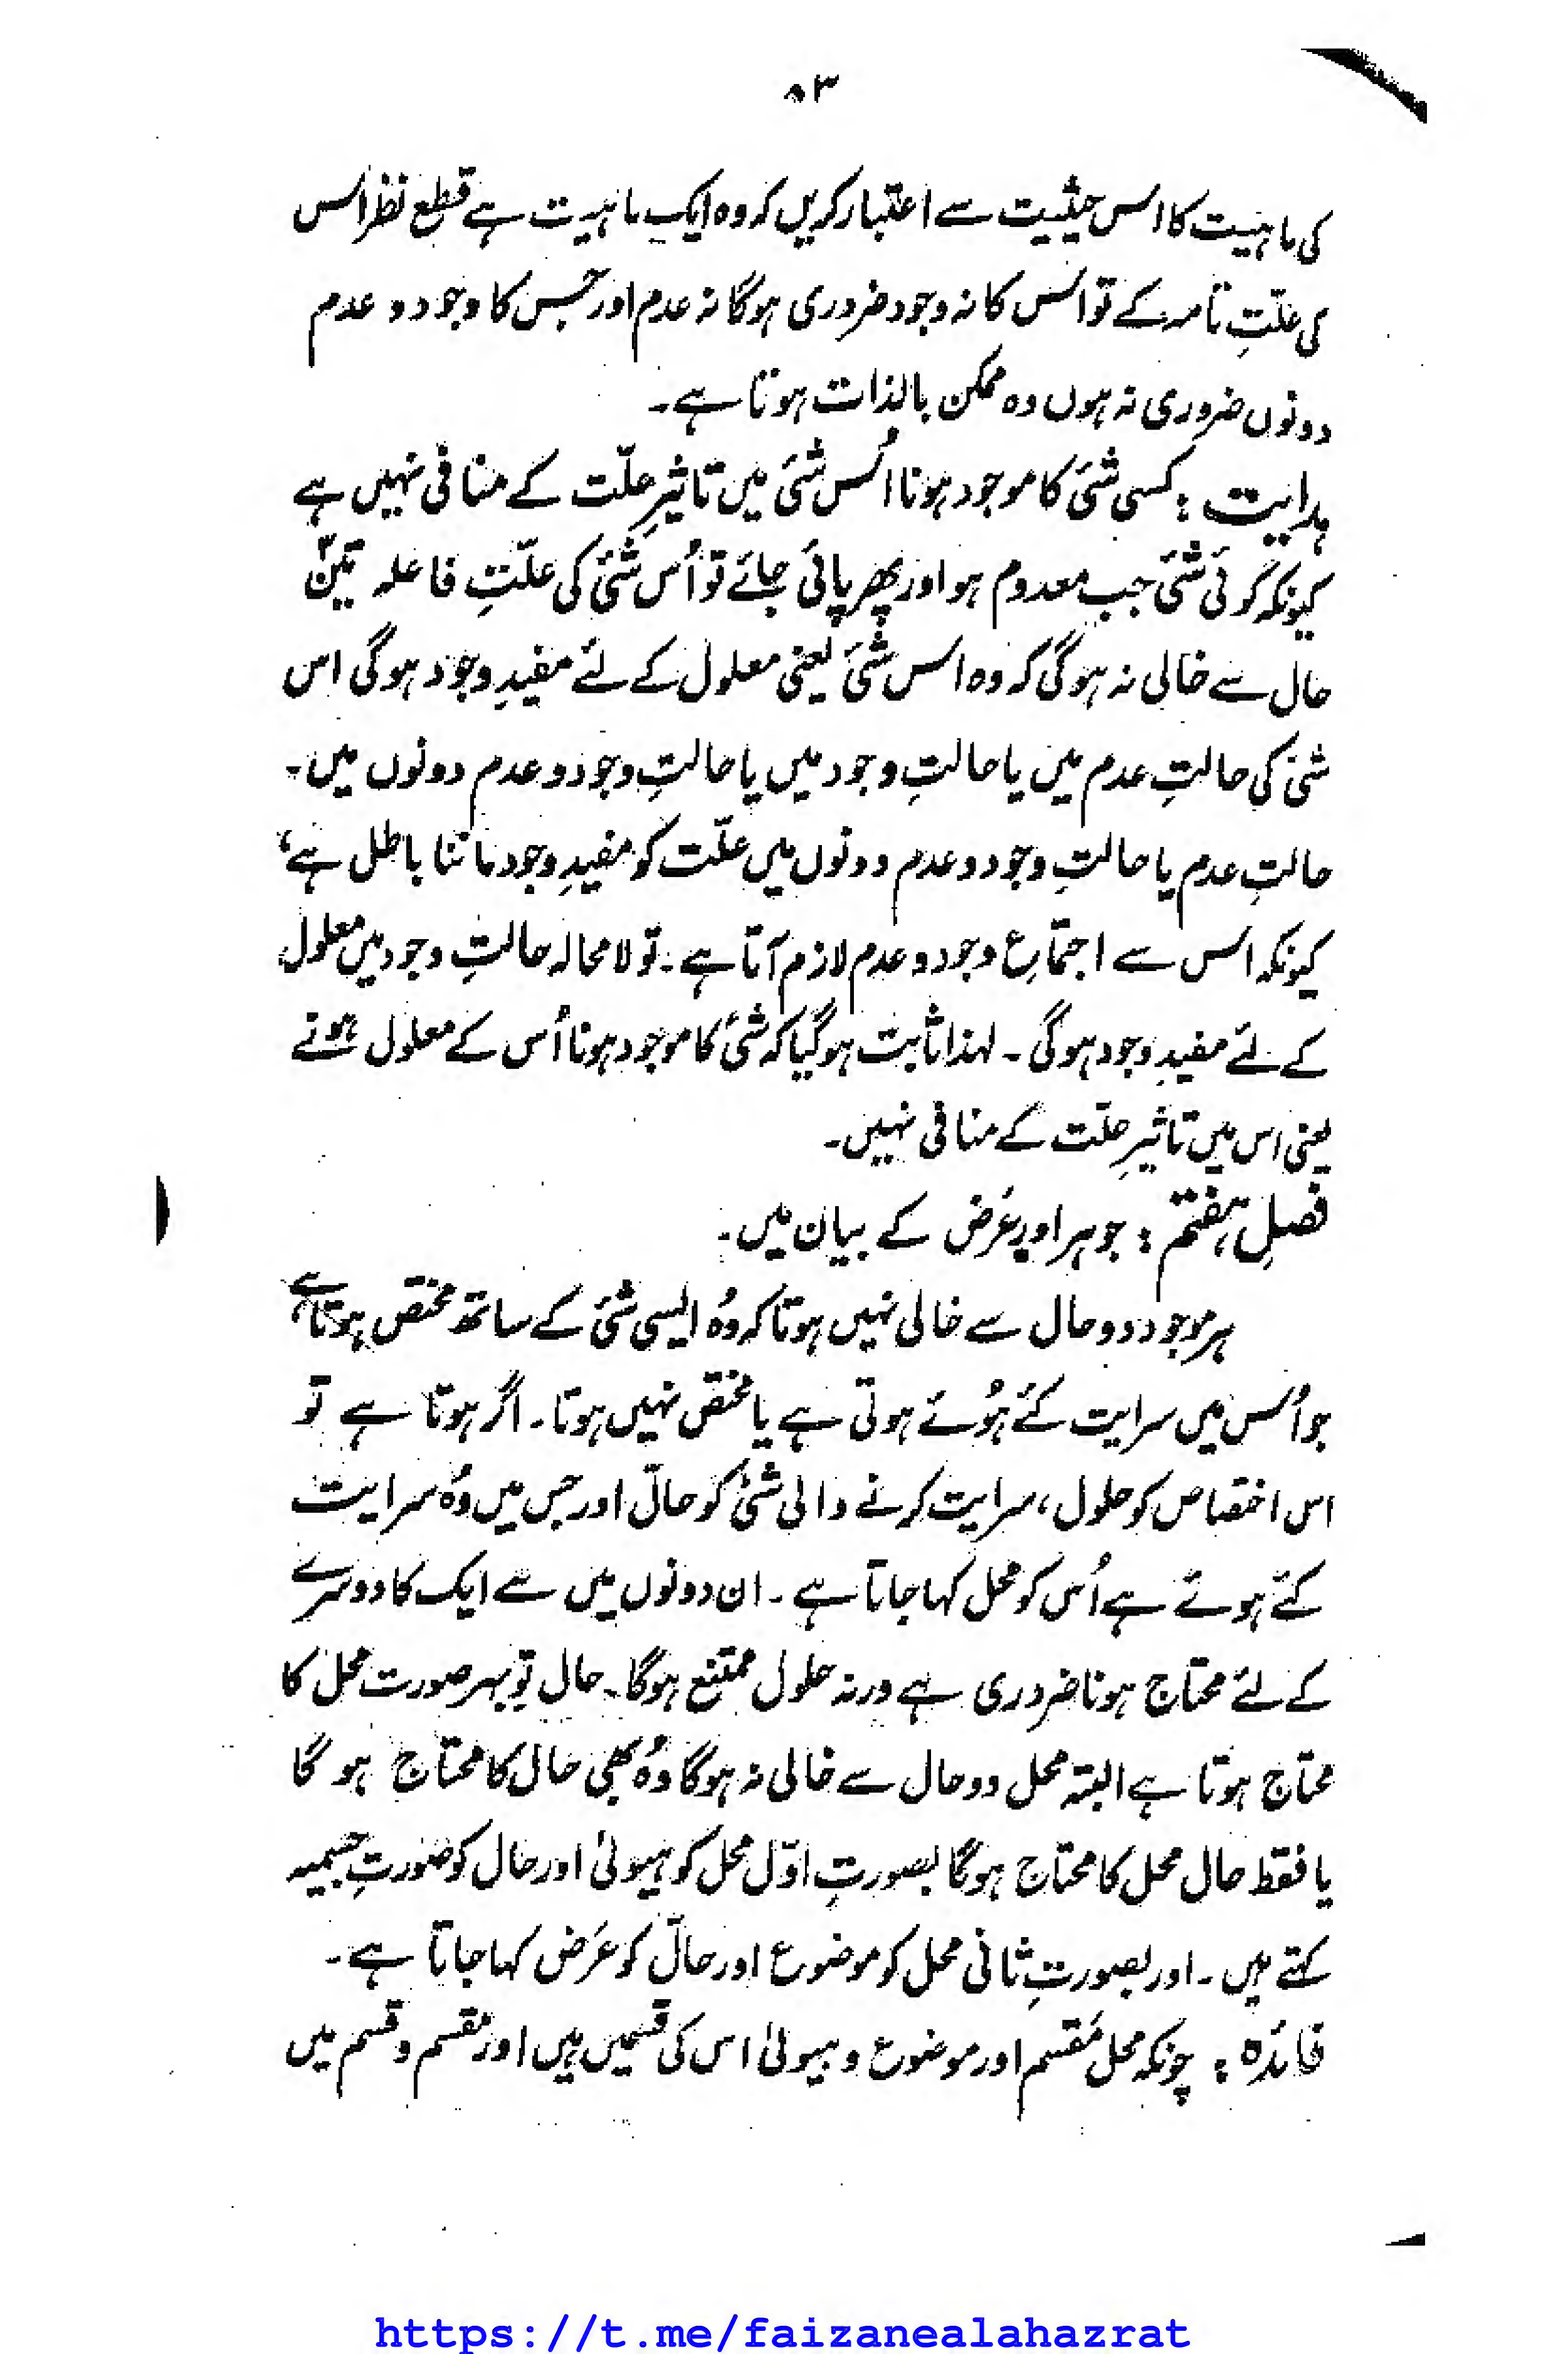 ۸۳
کی ماہیت کا اس حیثیت سے اعتبار کریں کہ وہ ایک ماہیت ہے قطع نظر اس
کی علّتِ تامہ کے تو اس کا نہ وجود ضروری ہوگا نہ عدم اور جس کا وجود و عدم
دونوں ضروری نہ ہوں وہ ممکن بالذات ہوتا ہے۔
ہدایت : کسی شئ کا موجود ہونا اُس شئ میں تاثیرِ علّت کے منافی نہیں ہے
کیونکہ کوئی شئ جب معدوم ہو اور پھر پائی جائے تو اُس شئ کی علّتِ فاعلہ تین
حال سے خالی نہ ہوگی کہ وہ اس شئ یعنی معلول کے لئے مفیدِ وجود ہوگی اس
شئ کی حالتِ عدم میں یا حالتِ وجود میں یا حالتِ وجود و عدم دونوں میں۔
حالتِ عدم یا حالتِ وجود و عدم دونوں میں علّت کو مفیدِ وجود ماننا باطل ہے،
کیونکہ اس سے اجتماعِ وجود و عدم لازم آتا ہے۔ تو لامحالہ حالتِ وجود میں معلول
کے لئے مفیدِ وجود ہوگی ۔ لہذا ثابت ہوگیا کہ شئ کا موجود ہونا اُس کے معلول ہونے
یعنی اس میں تاثیرِ علّت کے منافی نہیں۔
فصلِ ہفتم : جوہر اور عَرَض کے بیان میں۔
ہر موجود دو حال سے خالی نہیں ہوتا کہ وُہ ایسی شئ کے ساتھ مختص ہوتا ہے
جو اُس میں سرایت کئے ہُوئے ہوتی ہے یا مختص نہیں ہوتا۔ اگر ہوتا ہے تو
اس اختصاص کو حلول ، سرایت کرنے والی شئ کو حالّ اور جس میں وُہ سرایت
کئے ہوئے ہے اُس کو محل کہا جاتا ہے ۔ ان دونوں میں سے ایک کا دوسرے
کے لئے محتاج ہونا ضروری ہے ورنہ حلول ممتنع ہوگا۔ حال تو بہر صورت محل کا
محتاج ہوتا ہے البتہ محل دو حال سے خالی نہ ہوگا وُہ بھی حال کا محتاج ہو گا
یا فقط حال محل کا محتاج ہوگا بصورتِ اوّل محل کو ہیولیٰ اور حال کو صورتِ جسمیہ
کہتے ہیں ۔ اور بصورتِ ثانی محل کو موضوع اور حالّ کو عَرَض کہا جاتا ہے ۔
فائدہ : چونکہ محل مَقسم اور موضوع و ہیولیٰ اس کی قسمیں ہیں اور مقسم و قسم میں
https://t.me/faizanealahazrat